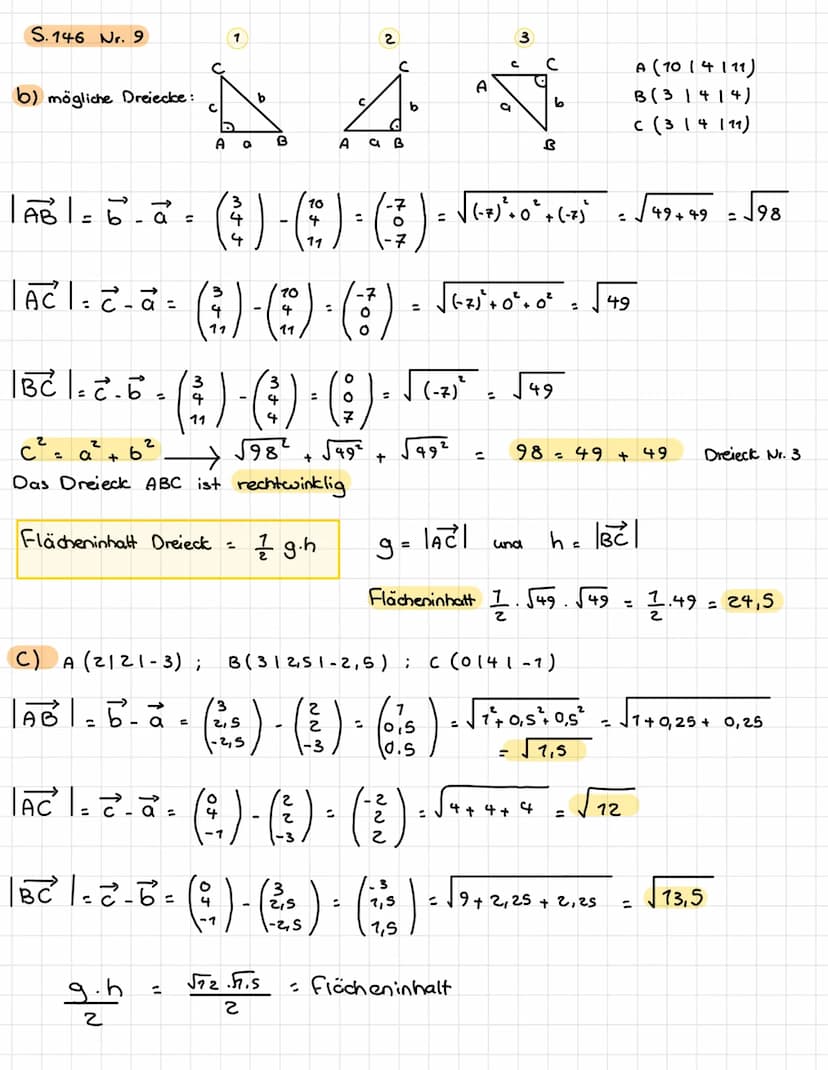 S.146 Nr. 9
1 2 3
b) mögliche Dreiecke:
C c b A a B
C c b A a B
c C A a b B
A (10 | 4 | 11)
B (3 | 4 | 4)
C (3 | 4 | 11)
|AB→| = b→ - a→ = (3 4 4) - (10 4 11) = (-7 0 -7) = √((-7)² + 0² + (-7)²) = √(49+49) = √98
|AC→| = c→ - a→ = (3 4 11) - (10 4 11) = (-7 0 0) = √((-7)² + 0² + 0²) = √49
|BC→| = c→ - b→ = (3 4 11) - (3 4 4) = (0 0 7) = √((-7)²) = √49
c² = a² + b² → √98² + √49² + √49² = 98 = 49 + 49 Dreieck Nr. 3
Das Dreieck ABC ist rechtwinklig
Flächeninhalt Dreieck = 1/2 g·h g = |AC→| und h = |BC→|
Flächeninhalt 1/2 · √49 · √49 = 1/2 · 49 = 24,5
C) A (2|2|-3) ; B(3|2,5|-2,5) ; C (0|4|-1)
|AB→| = b→ - a→ = (3 2,5 -2,5) - (2 2 -3) = (1 0,5 0.5) = √(1² + 0,5² + 0,5²) = √(1+0,25+ 0,25)
= √1,5
|AC→| = c→ - a→ = (0 4 -1) - (2 2 -3) = (-2 2 2) = √(4+4+4) = √12
|BC→| = c→ - b→ = (0 4 -1) - (3 2,5 -2,5) = (-3 1,5 1,5) = √(9+2,25+2,25) = √13,5
g·h/2 = √12·√1,5/2 = Flächeninhalt